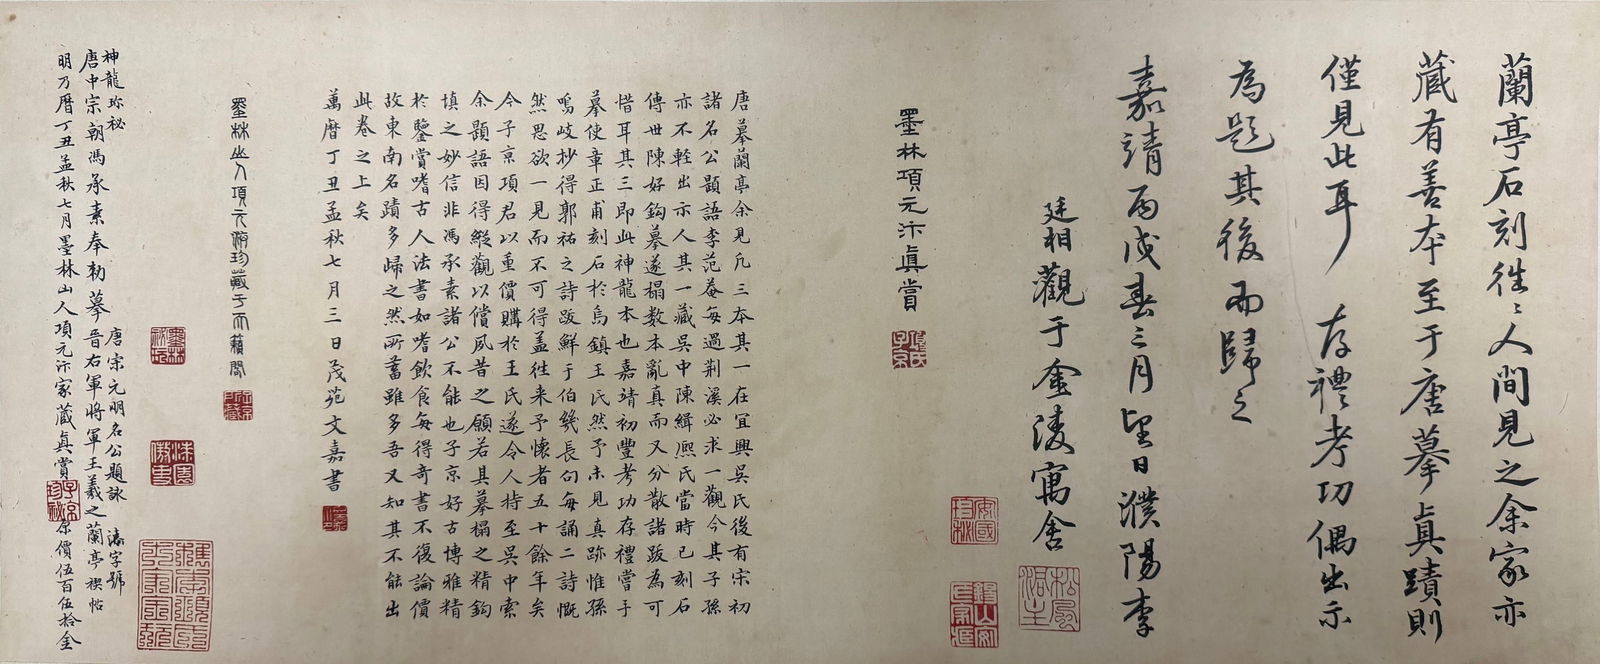 蘭亭石刻徃〻人間見之余家亦
藏有善本至于唐摹真蹟則
僅見此耳 存禮考功偶出示
為題其後而歸之
嘉靖丙戌春三月望日濮陽李
廷相觀于金陵寓舍
墨林項元汴真賞
唐摹蘭亭余見凡三本其一在宜興吳氏後有宋初
諸名公題語李范菴每過荆溪必求一觀今其子孫
亦不輕出示人其一藏吳中陳緝熙氏當時已刻石
傳世陳好鈎摹遂搨数本亂真而又分散諸跋為可
惜耳其三即此神龍本也嘉靖初豐考功存禮嘗手
摹使章正甫刻石於烏鎮王氏然予未見真跡惟孫
鳴岐抄得郭祐之詩跋鮮于伯幾長句每誦二詩慨
然思欲一見而不可得盖徃来予懷者五十餘年矣
今子京項君以重價購於王氏遂令人持至吳中索
余題語因得縱觀以償夙昔之願若其摹搨之精鈎
填之妙信非馮承素諸公不能也子京好古博雅精
於鑒賞嗜古人法書如嗜飲食每得奇書不復論價
故東南名蹟多歸之然所蓄雖多吾又知其不能出
此卷之上矣
萬曆丁丑孟秋七月三日茂苑文嘉書
墨林山人項元汴珍藏于天籟閣
唐宗元明名公題詠 湊字號
神龍珎祕
唐中宗朝馮承素奉勅摹晉右軍將軍王羲之蘭亭禊帖
明万曆丁丑孟秋七月墨林山人項元汴家藏真賞 原價伍百伍拾金